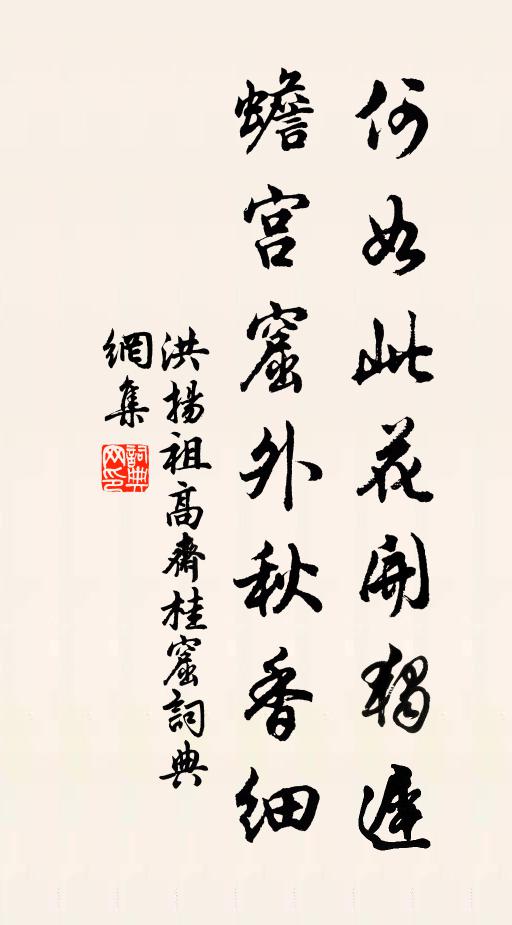 何如此花開獨遲
蟾宮窟外秋香細
洪揚祖高齊桂窟詞典
網集
詞典網印